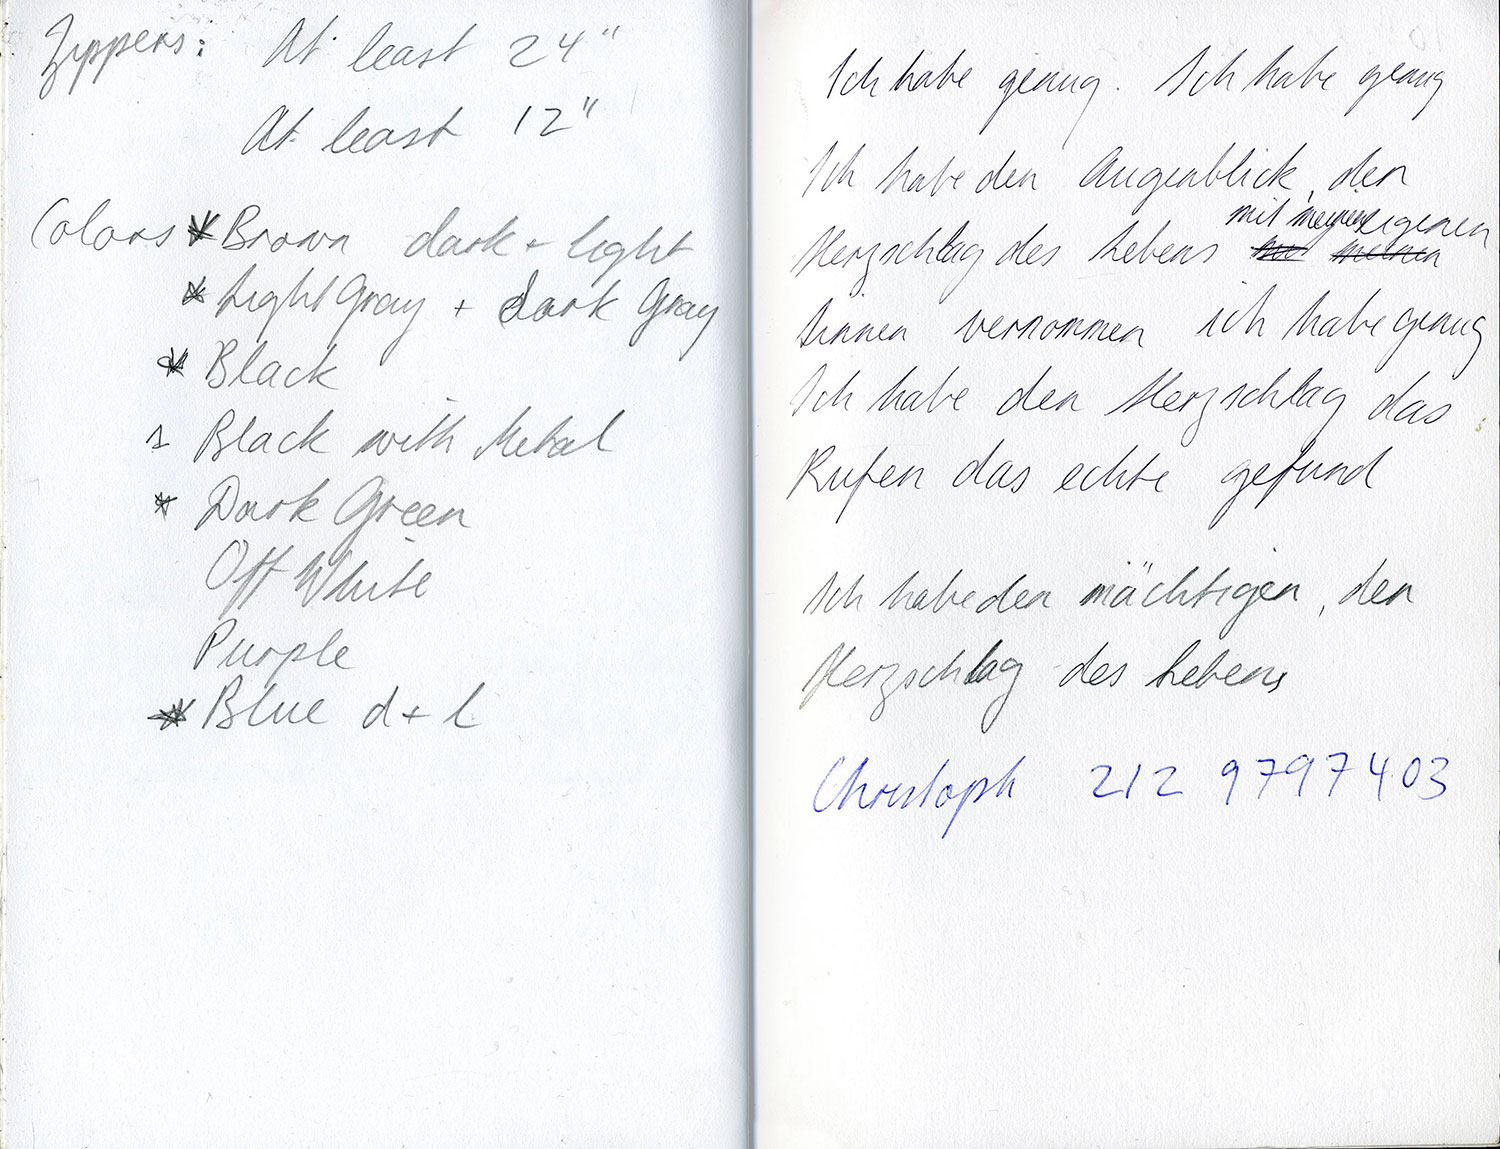 Zippers: At least 24"
At least 12"
Colors * Brown dark + light
* Light Gray + dark Gray
* Black
1 Black with Metal
* Dark Green
Off White
Purple
* Blue d + l
Ich habe genug. Ich habe genug
Ich habe den Augenblick, den
mit meinen eigenen
Herzschlag des Lebens
Sinnen vernommen ich habe genug
Ich habe den Herzschlag das
Rufen das echte gefund
Ich habe den mächtigen, den
Herzschlag des Lebens
Christoph 212 9797403